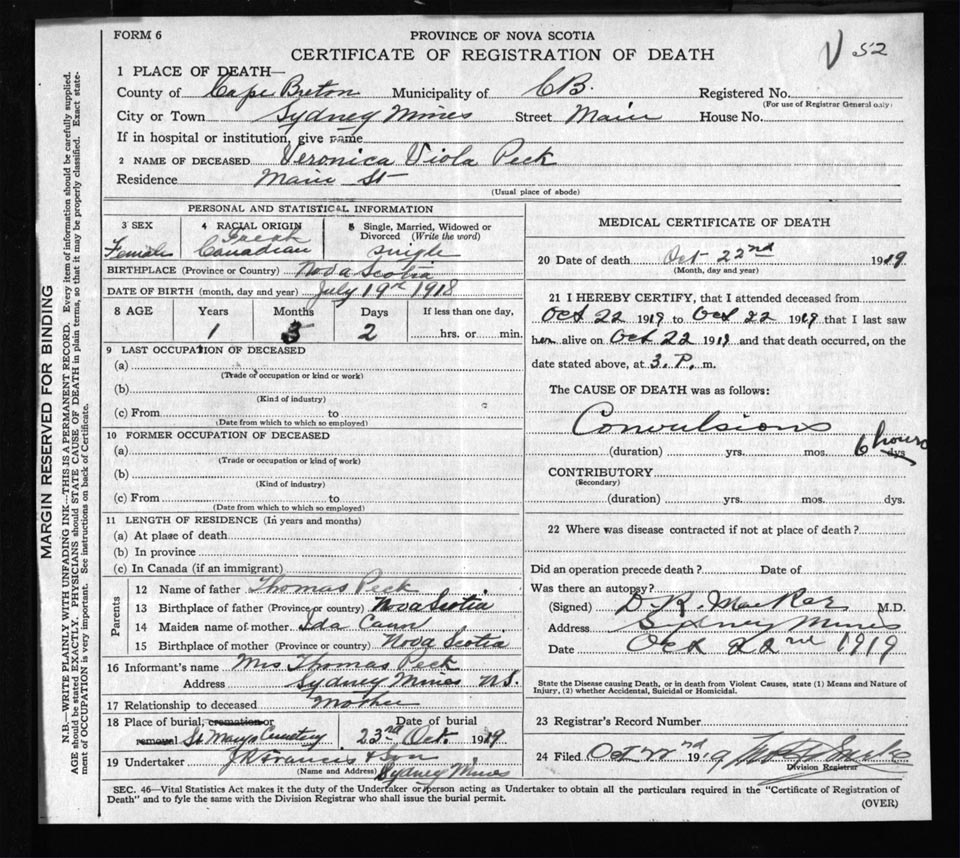 FORM 6
PROVINCE OF NOVA SCOTIA
CERTIFICATE OF REGISTRATION OF DEATH
52
1 PLACE OF DEATH—
County of Cape Breton Municipality of C.B. Registered No.
(For use of Registrar General only)
City or Town Sydney Mines Street Main House No.
If in hospital or institution, give name
2 NAME OF DECEASED Veronica Viola Peck
Residence Main St
(Usual place of abode)
PERSONAL AND STATISTICAL INFORMATION
3 SEX 4 RACIAL ORIGIN 5 Single, Married, Widowed or Divorced (Write the word)
Female Canadian single
BIRTHPLACE (Province or Country) Nova Scotia
DATE OF BIRTH (month, day and year) July 19th 1918
8 AGE Years Months Days If less than one day,
1 3 2 hrs. or min.
9 LAST OCCUPATION OF DECEASED
(a)
(Trade or occupation or kind or work)
(b)
(Kind of industry)
(c) From to
(Date from which to which so employed)
10 FORMER OCCUPATION OF DECEASED
(a)
(Trade or occupation or kind or work)
(b)
(Kind of industry)
(c) From to
(Date from which to which so employed)
11 LENGTH OF RESIDENCE (In years and months)
(a) At place of death
(b) In province
(c) In Canada (if an immigrant)
Parents
12 Name of father Thomas Peck
13 Birthplace of father (Province or country) Nova Scotia
14 Maiden name of mother Ida Cann
15 Birthplace of mother (Province or country) Nova Scotia
16 Informant's name Mrs Thomas Peck
Address Sydney Mines N.S.
17 Relationship to deceased Mother
18 Place of burial, cremation or Date of burial
removal St Marys Cemetery 23rd Oct. 1919
19 Undertaker J R Francis & Son
(Name and Address) Sydney Mines
MEDICAL CERTIFICATE OF DEATH
20 Date of death Oct 22nd 1919
(Month, day and year)
21 I HEREBY CERTIFY, that I attended deceased from
Oct 22 1919 to Oct 22 1919 that I last saw
her alive on Oct 22 1919 and that death occurred, on the
date stated above, at 3. P. m.
The CAUSE OF DEATH was as follows:
Convulsions
(duration) yrs. mos. 6 hours dys
CONTRIBUTORY
(Secondary)
(duration) yrs. mos. dys.
22 Where was disease contracted if not at place of death?
Did an operation precede death? Date of
Was there an autopsy?
(Signed) D. K. M.D.
Address Sydney Mines
Date Oct 22nd 1919
State the Disease causing Death, or in death from Violent Causes, state (1) Means and Nature of
Injury, (2) whether Accidental, Suicidal or Homicidal.
23 Registrar's Record Number
24 Filed Oct 22nd 19
Division Registrar
SEC. 46—Vital Statistics Act makes it the duty of the Undertaker or person acting as Undertaker to obtain all the particulars required in the "Certificate of Registration of
Death" and to fyle the same with the Division Registrar who shall issue the burial permit.
(OVER)
MARGIN RESERVED FOR BINDING
N.B.—WRITE PLAINLY WITH UNFADING INK—THIS IS A PERMANENT RECORD. Every item of information should be carefully supplied.
AGE should be stated EXACTLY. PHYSICIANS should STATE CAUSE OF DEATH in plain terms, so that it may be properly classified. Exact state-
ment of OCCUPATION is very important. See instructions on back of Certificate.